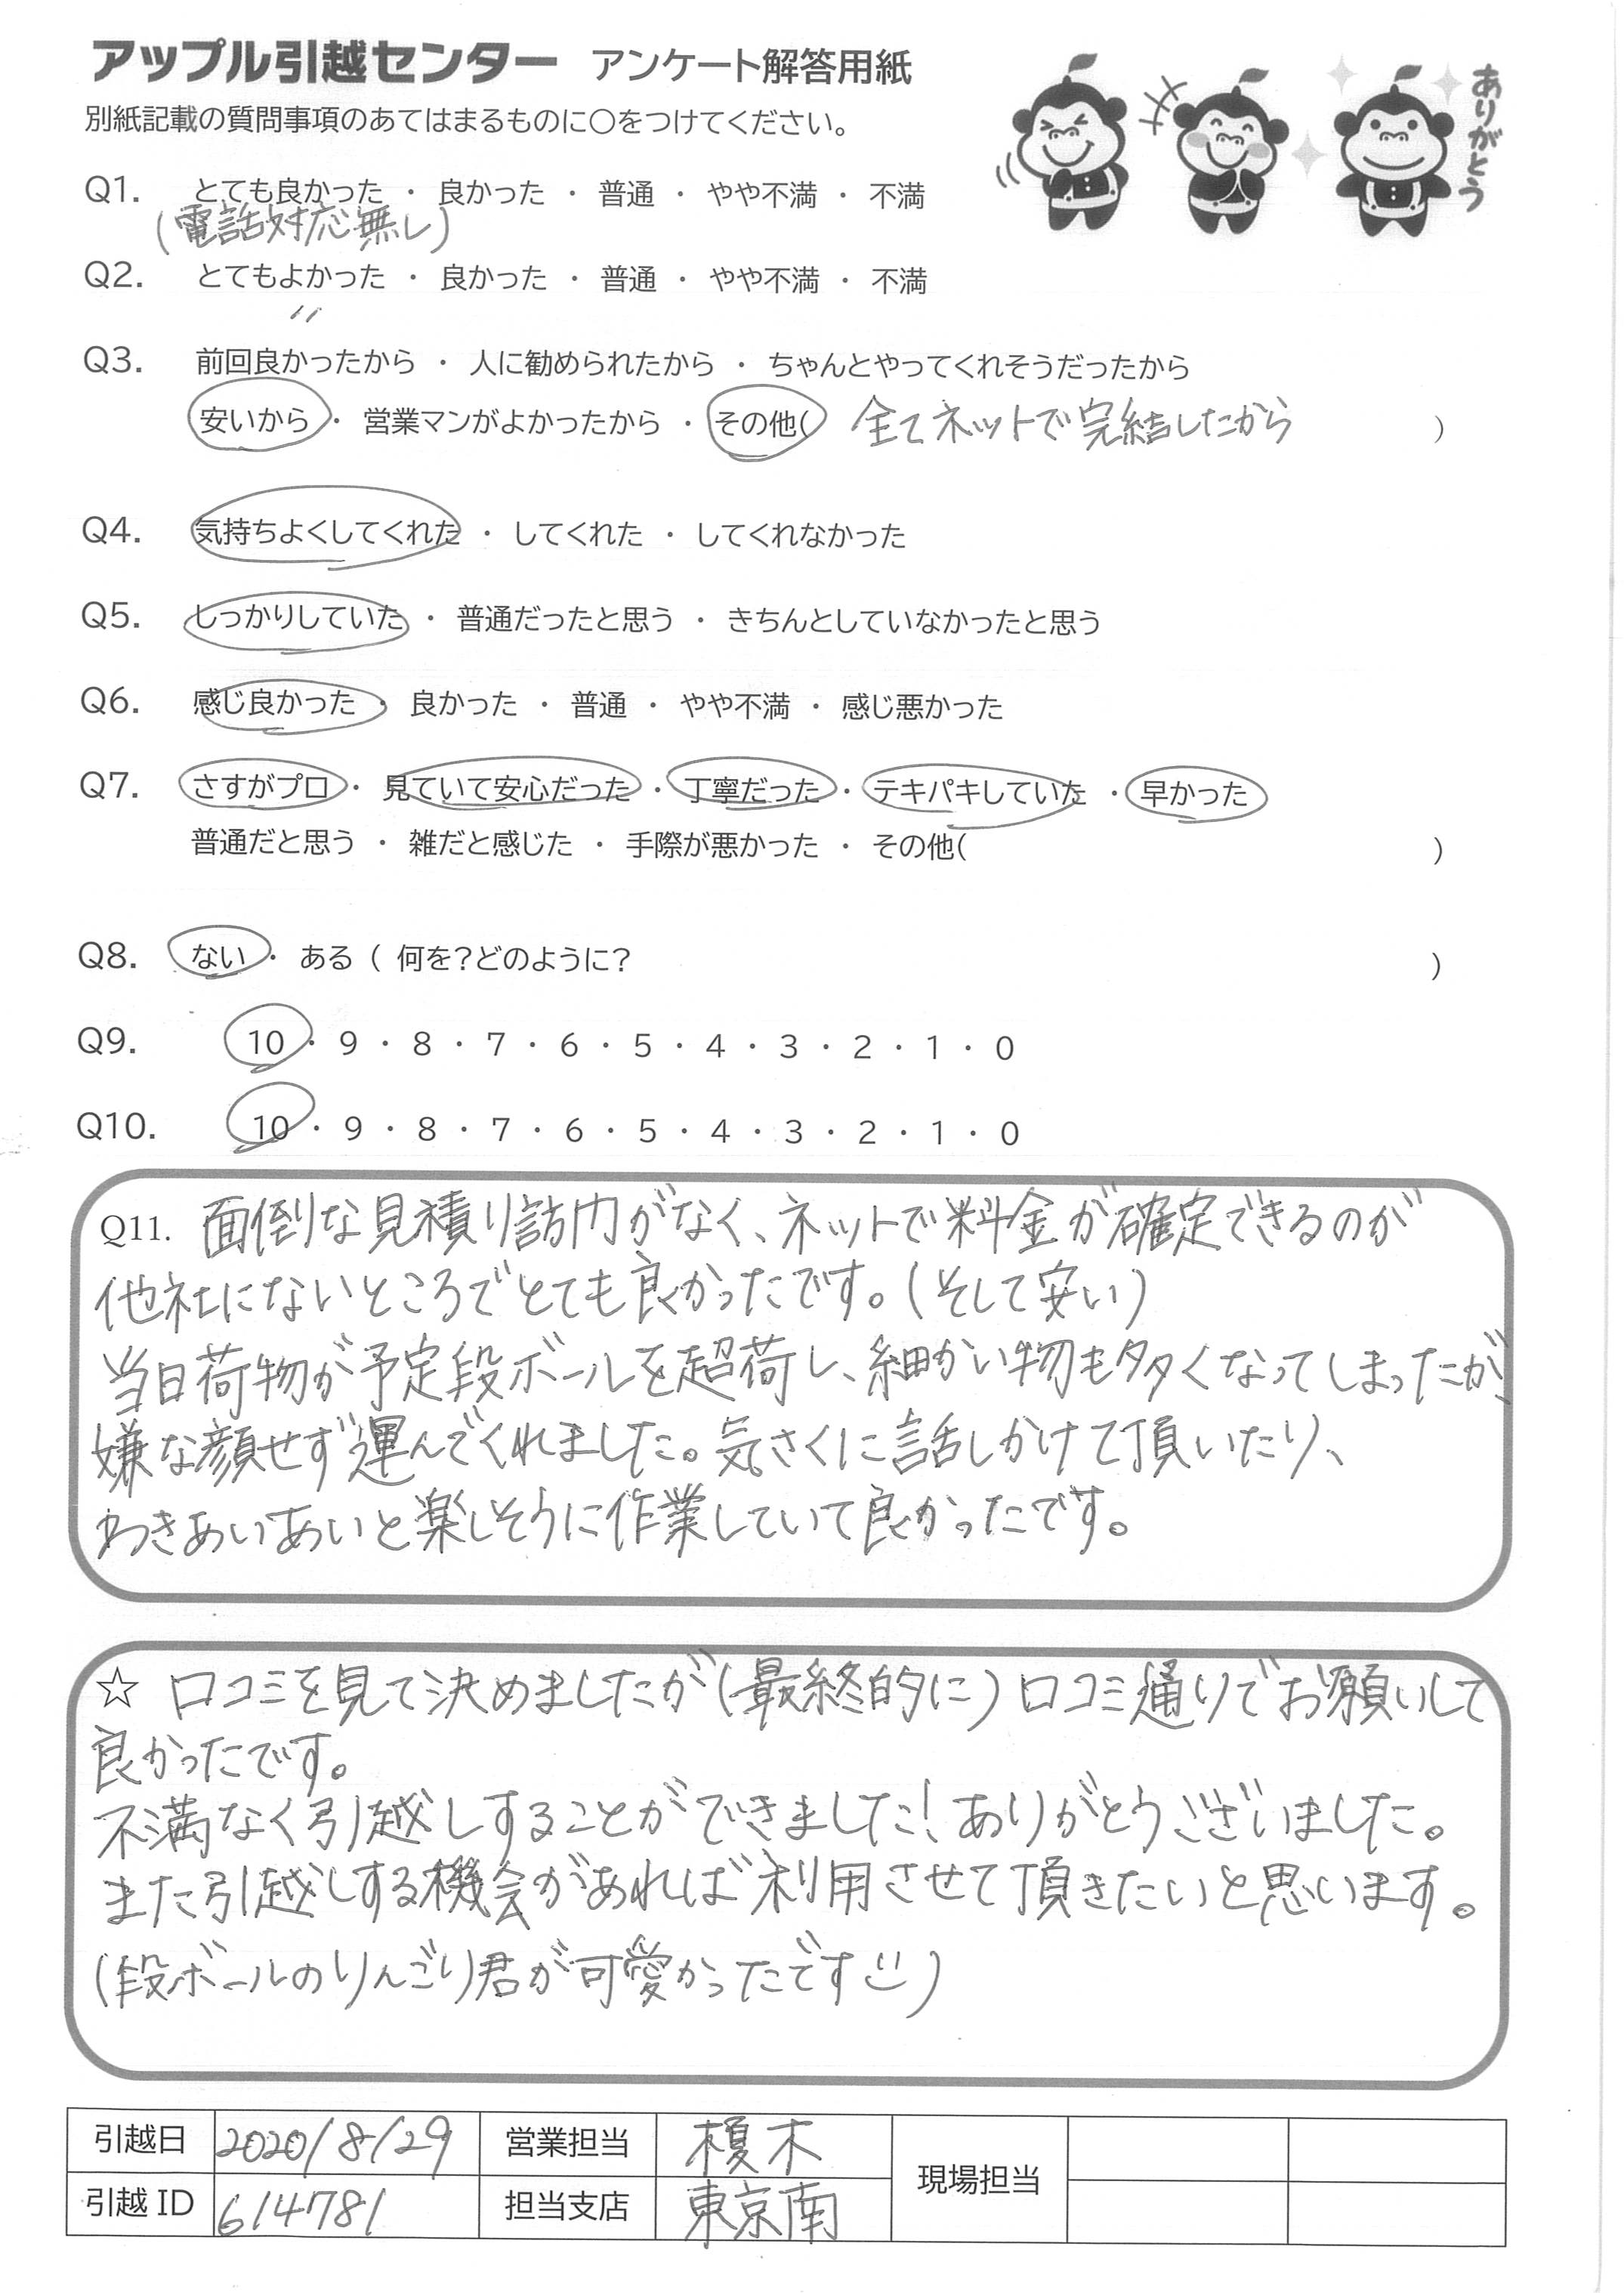 アップル引越センター アンケート解答用紙
別紙記載の質問事項のあてはまるものに○をつけてください。
ありがとう
Q1. とても良かった ・ 良かった ・ 普通 ・ やや不満 ・ 不満
(電話対応無し)
Q2. とてもよかった ・ 良かった ・ 普通 ・ やや不満 ・ 不満
〃
Q3. 前回良かったから ・ 人に勧められたから ・ ちゃんとやってくれそうだったから
安いから ・ 営業マンがよかったから ・ その他( 全てネットで完結したから )
Q4. 気持ちよくしてくれた ・ してくれた ・ してくれなかった
Q5. しっかりしていた ・ 普通だったと思う ・ きちんとしていなかったと思う
Q6. 感じ良かった ・ 良かった ・ 普通 ・ やや不満 ・ 感じ悪かった
Q7. さすがプロ ・ 見ていて安心だった ・ 丁寧だった ・ テキパキしていた ・ 早かった
普通だと思う ・ 雑だと感じた ・ 手際が悪かった ・ その他( )
Q8. ない ・ ある ( 何を?どのように? )
Q9. 10 ・ 9 ・ 8 ・ 7 ・ 6 ・ 5 ・ 4 ・ 3 ・ 2 ・ 1 ・ 0
Q10. 10 ・ 9 ・ 8 ・ 7 ・ 6 ・ 5 ・ 4 ・ 3 ・ 2 ・ 1 ・ 0
Q11. 面倒な見積り訪問がなく、ネットで料金が確定できるのが
他社にないところでとても良かったです。(そして安い)
当日荷物が予定段ボールを超荷し、細かい物も多くなってしまったが、
嫌な顔せず運んでくれました。気さくに話しかけて頂いたり、
わきあいあいと楽しそうに作業していて良かったです。
☆ 口コミを見て決めましたが(最終的に)口コミ通りでお願いして
良かったです。
不満なく引越しすることができました!ありがとうございました。
また引越しする機会があれば利用させて頂きたいと思います。
(段ボールのりんごり君が可愛かったです☺)
引越日 2020/8/29 営業担当 榎木 現場担当
引越 ID 614781 担当支店 東京南